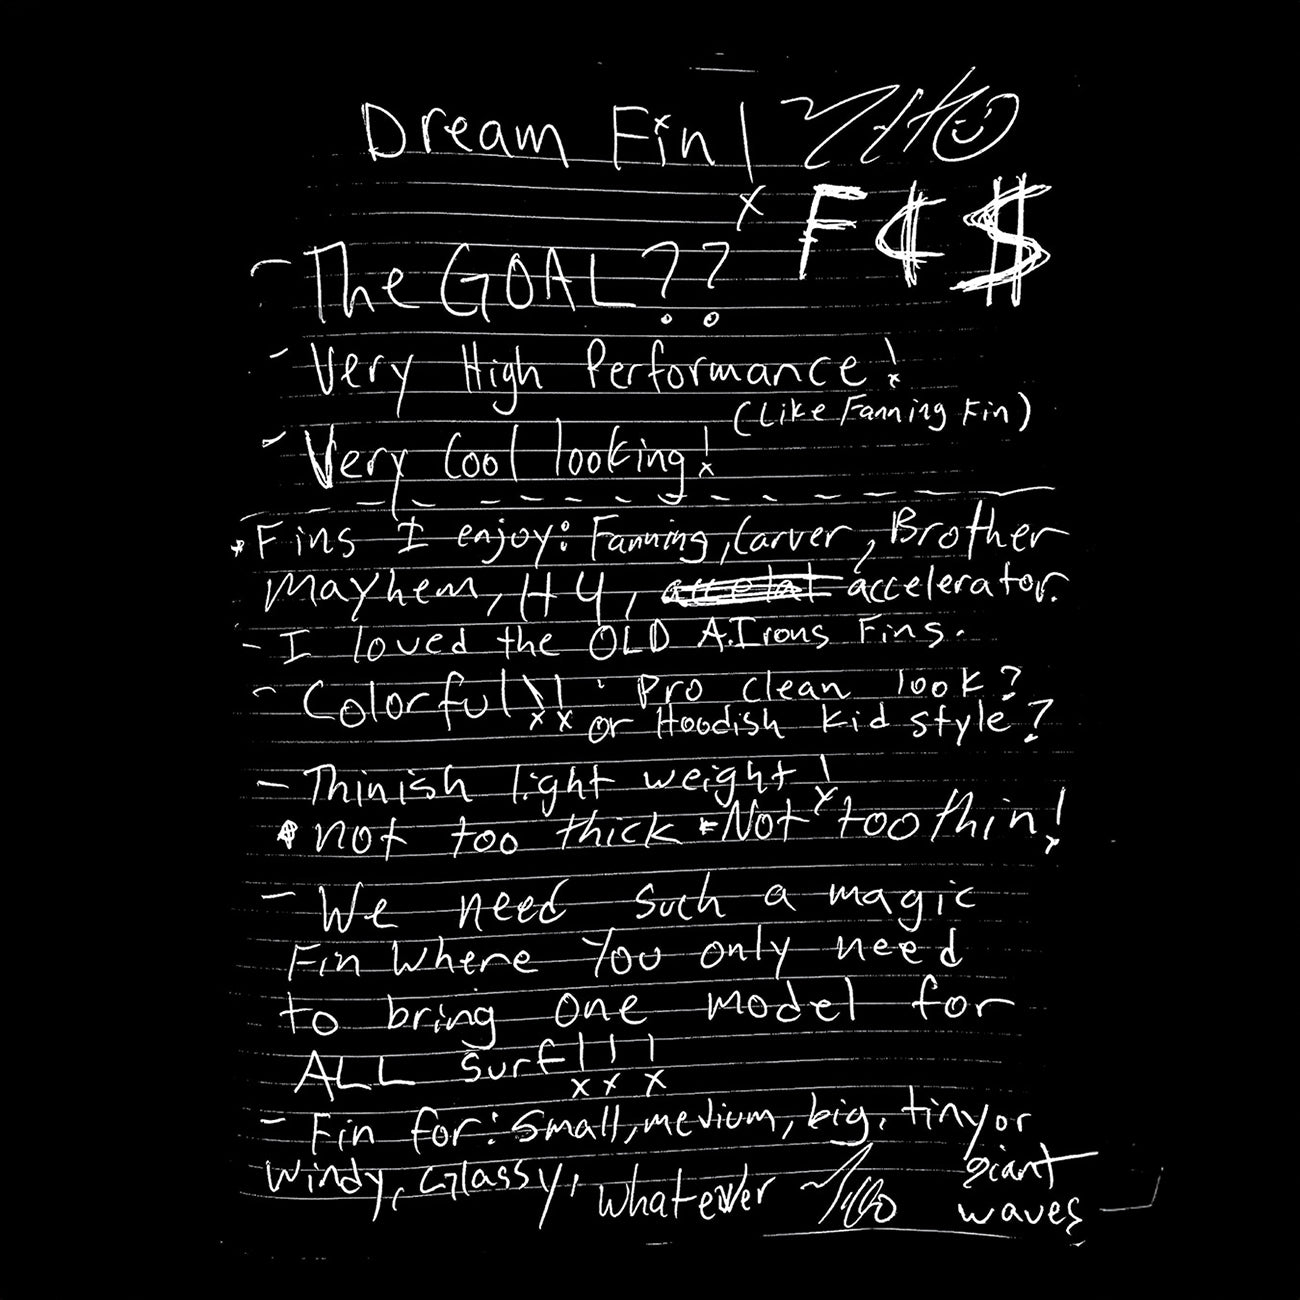 Dream Fin!
F¢$
- The GOAL??
- Very High Performance!
(Like Fanning Fin)
- Very Cool looking!
Fins I enjoy: Fanning, Carver, Brother
Mayhem, H4, accelerator.
- I loved the OLD A.Irons Fins.
- Colorful!! Pro clean look?
or Hoodish Kid style?
- Thinish light weight!
not too thick - Not too thin!
- We need such a magic
Fin Where You only need
to bring one model for
ALL surf!!!
- Fin for: Small, medium, big, tiny or
giant
Windy, Glassy, whatever
waves